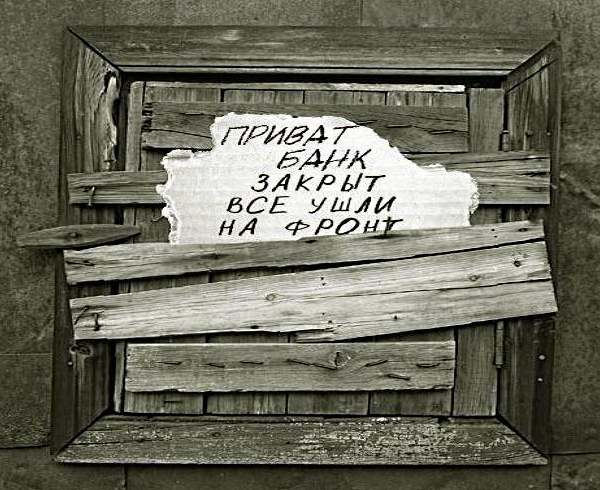 ПРИВАТ
БАНК
ЗАКРЫТ
ВСЕ УШЛИ
НА ФРОНТ